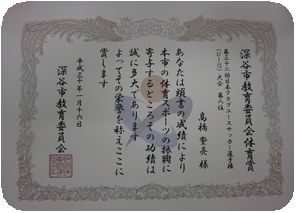 深谷市教育委員会体育賞
第三十二回日本クラブユースサッカー選手権
（U-15）大会 第八位
髙橋 奎亮 様
あなたは頭書の成績により
本市の体育スポーツの振興に
寄与するところその功績は
誠に多大であります
よってその栄誉を称えここに
賞します
平成三十年一月十六日
深谷市教育委員会